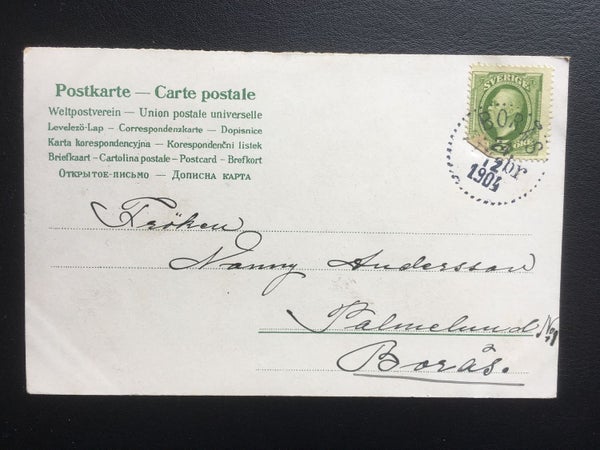 Postkarte — Carte postale
Weltpostverein — Union postale universelle
Levelező-Lap — Correspondenzkarte — Dopisnice
Karta korespondencyjna — Korespondenční listek
Briefkaart — Cartolina postale — Postcard — Brefkort
Открытое-письмо — Дописна карта
SVERIGE
ÖRE
BORÅS
12
1904
Fröken
Nanny Andersson
Palmelund
Borås.